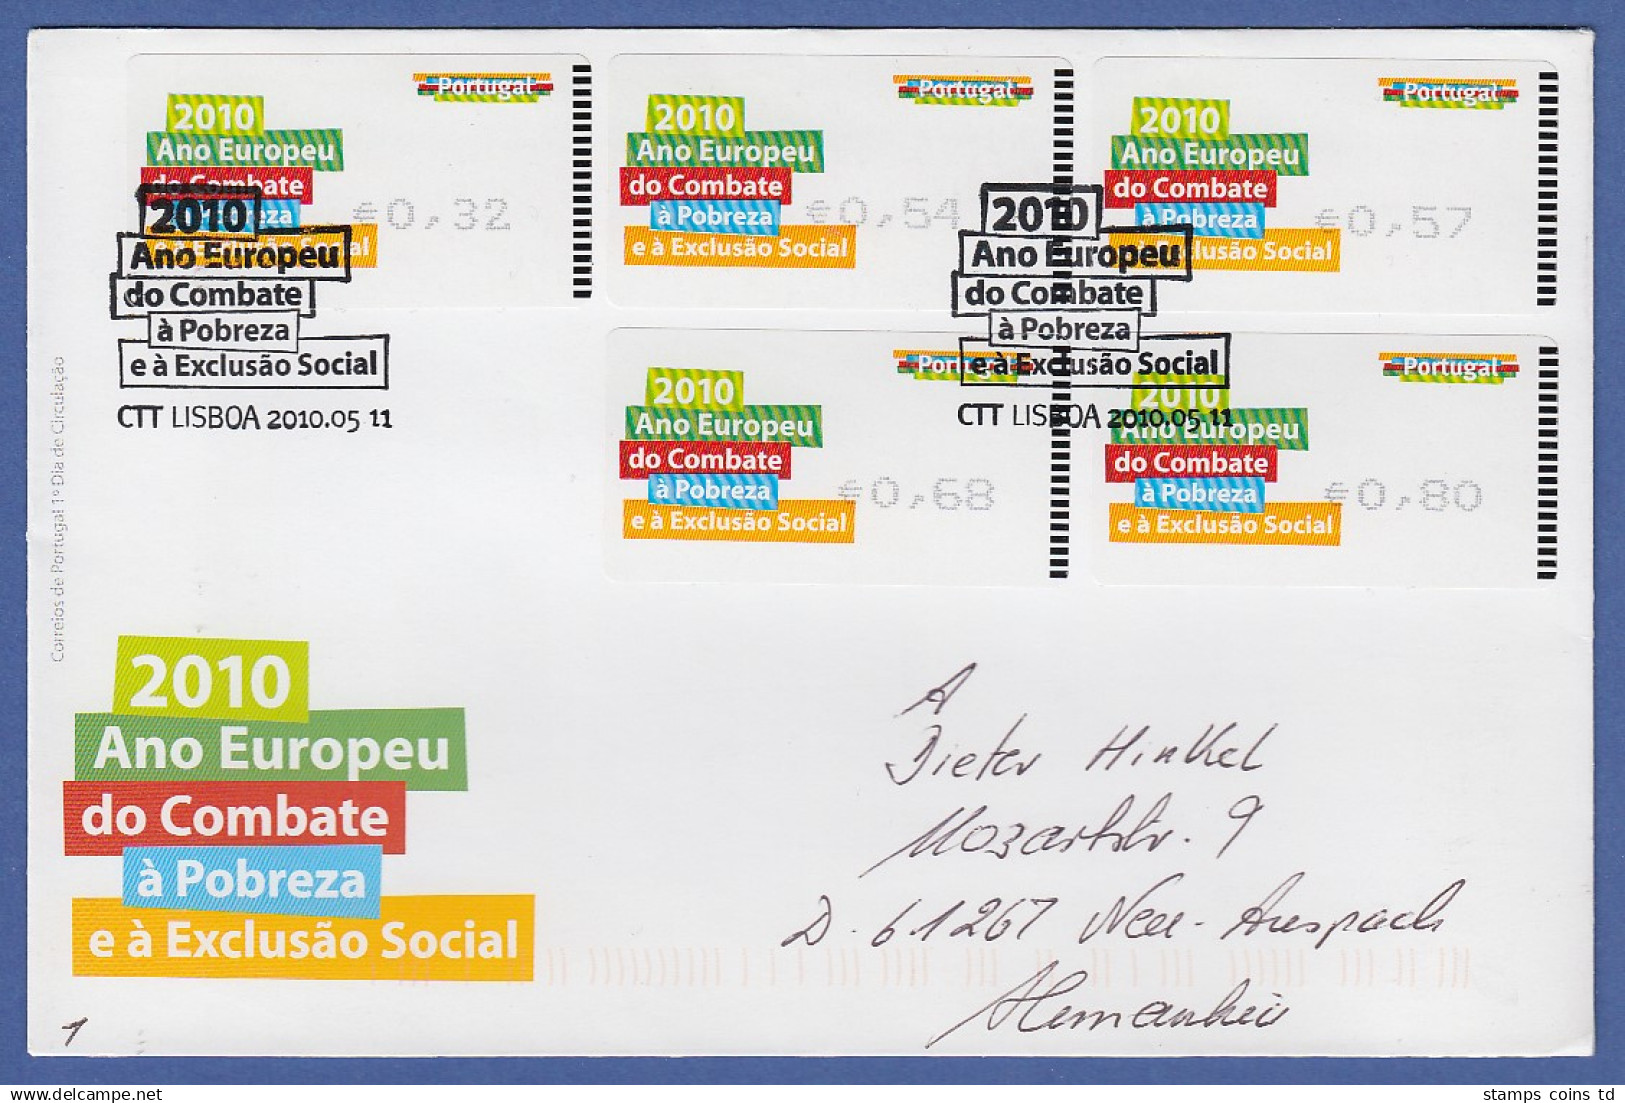 Portugal
2010
Ano Europeu
do Combate
à Pobreza
e à Exclusão Social
€0,32
Portugal
2010
Ano Europeu
do Combate
à Pobreza
e à Exclusão Social
€0,54
Portugal
2010
Ano Europeu
do Combate
à Pobreza
e à Exclusão Social
€0,57
2010
Ano Europeu
do Combate
à Pobreza
e à Exclusão Social
CTT LISBOA 2010.05 11
2010
Ano Europeu
do Combate
à Pobreza
e à Exclusão Social
CTT LISBOA 2010.05 11
Portugal
2010
Ano Europeu
do Combate
à Pobreza
e à Exclusão Social
€0,68
Portugal
2010
Ano Europeu
do Combate
à Pobreza
e à Exclusão Social
€0,80
Correios de Portugal 1º Dia de Circulação
2010
Ano Europeu
do Combate
à Pobreza
e à Exclusão Social
A
Dieter Hinkel
Mozartstr. 9
D. 61267 Neu-Anspach
1
stamps coins td